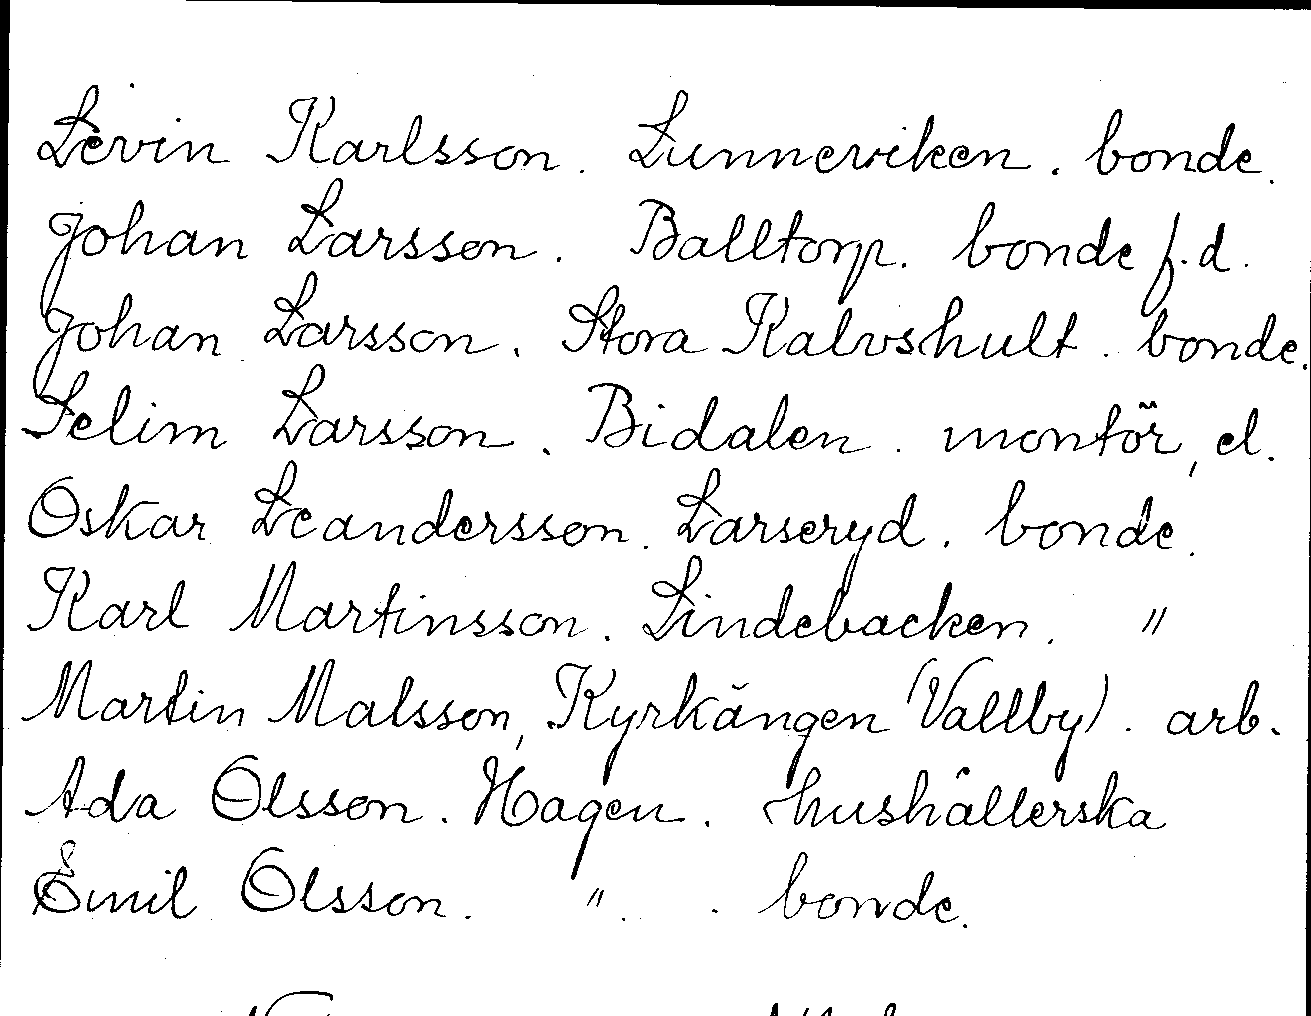 Levin Karlsson. Lunneviken. bonde.
Johan Larsson. Balltorp. bonde f.d.
Johan Larsson. Stora Kalvshult. bonde.
Selim Larsson. Bidalen. montör, el.
Oskar Leandersson. Larseryd. bonde.
Karl Martinsson. Lindebacken. "
Martin Malsson, Kyrkängen (Vallby). arb.
Ada Olsson. Hagen. hushållerska
Emil Olsson. ". . bonde.